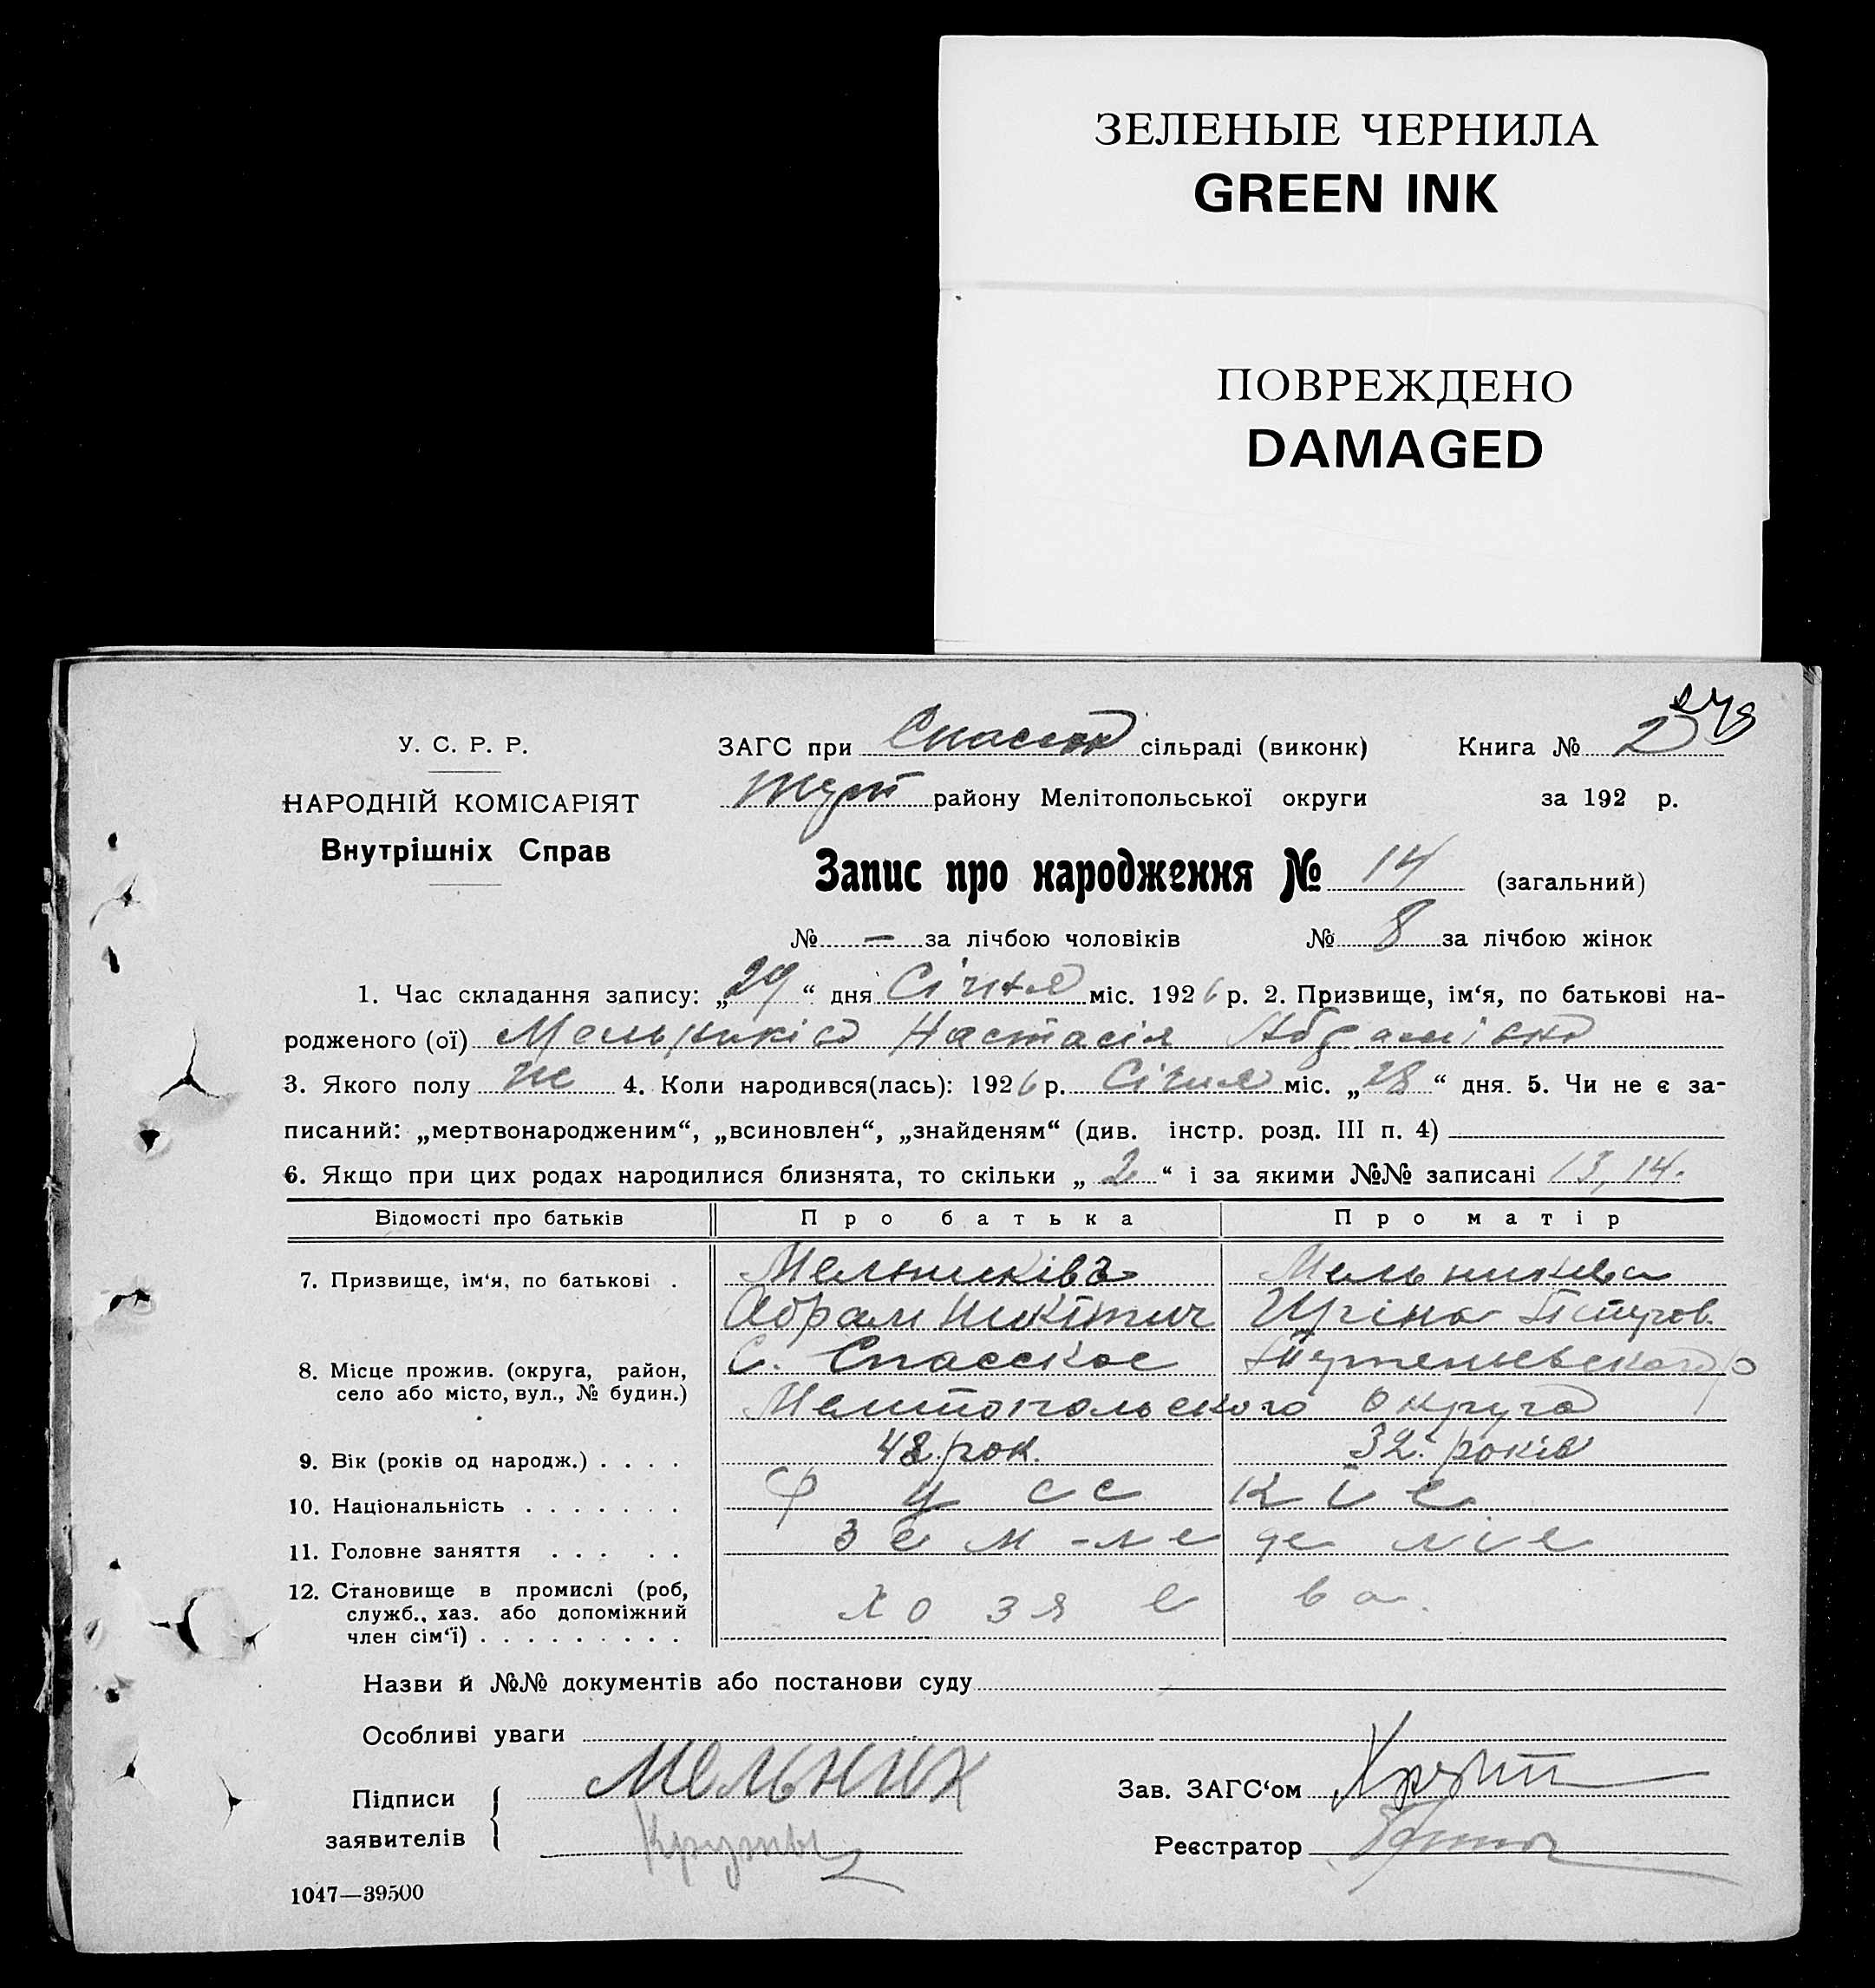 ЗЕЛЕНЫЕ ЧЕРНИЛА
GREEN INK
ПОВРЕЖДЕНО
DAMAGED
У. С. Р. Р.
НАРОДНІЙ КОМІСАРІЯТ
Внутрішніх Справ
ЗАГС при сільраді (виконк) Книга № 2
району Мелітопольської округи за 192 р.
Запис про народження № 14 (загальний)
№ — за лічбою чоловіків № 8 за лічбою жінок
1. Час складання запису: „29“ дня Січня міс. 1926 р. 2. Призвище, ім‘я, по батькові на-
родженого (ої) Мельниківа Настасія Абрамівна
3. Якого полу ж 4. Коли народився(лась): 1926 р. Січня міс. „28“ дня. 5. Чи не є за-
писаний: „мертвонародженим“, „всиновлен“, „знайденям“ (див. інстр. розд. III п. 4)
6. Якщо при цих родах народилися близнята, то скільки „2“ і за якими №№ записані 13, 14.
Відомості про батьків Про батька Про матір
7. Призвище, ім‘я, по батькові . Мельників Мельникева
Абрам Никітич Иріна
8. Місце прожив. (округа, район, С. Спасское
село або місто, вул., № будин.) Мелітопольского округа
9. Вік (років од народж.) . . . . 48 рок. 32 років
10. Національність . . . . . . . русскіе
11. Головне заняття . . . . . зем-леделіе
12. Становище в промислі (роб,
служб., хаз. або допоміжний хозяева.
член сім‘ї) . . . . . . . . .
Назви й №№ документів або постанови суду
Особливі уваги
Підписи Мельник Зав. ЗАГС‘ом
заявителів Реєстратор
1047—39500